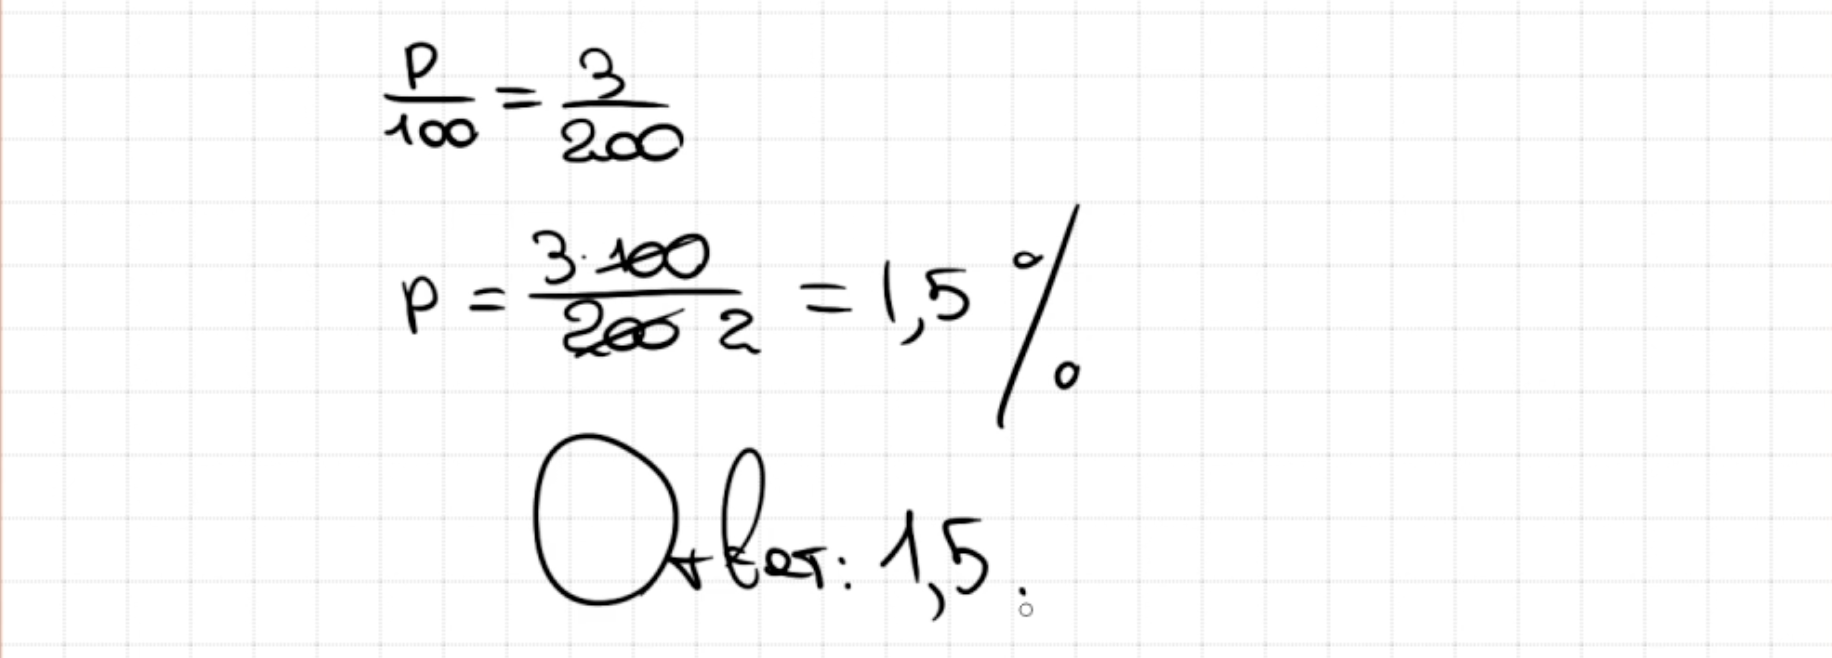 p/100 = 3/200
p = 3·100/200 2 = 1,5 %
Ответ: 1,5.